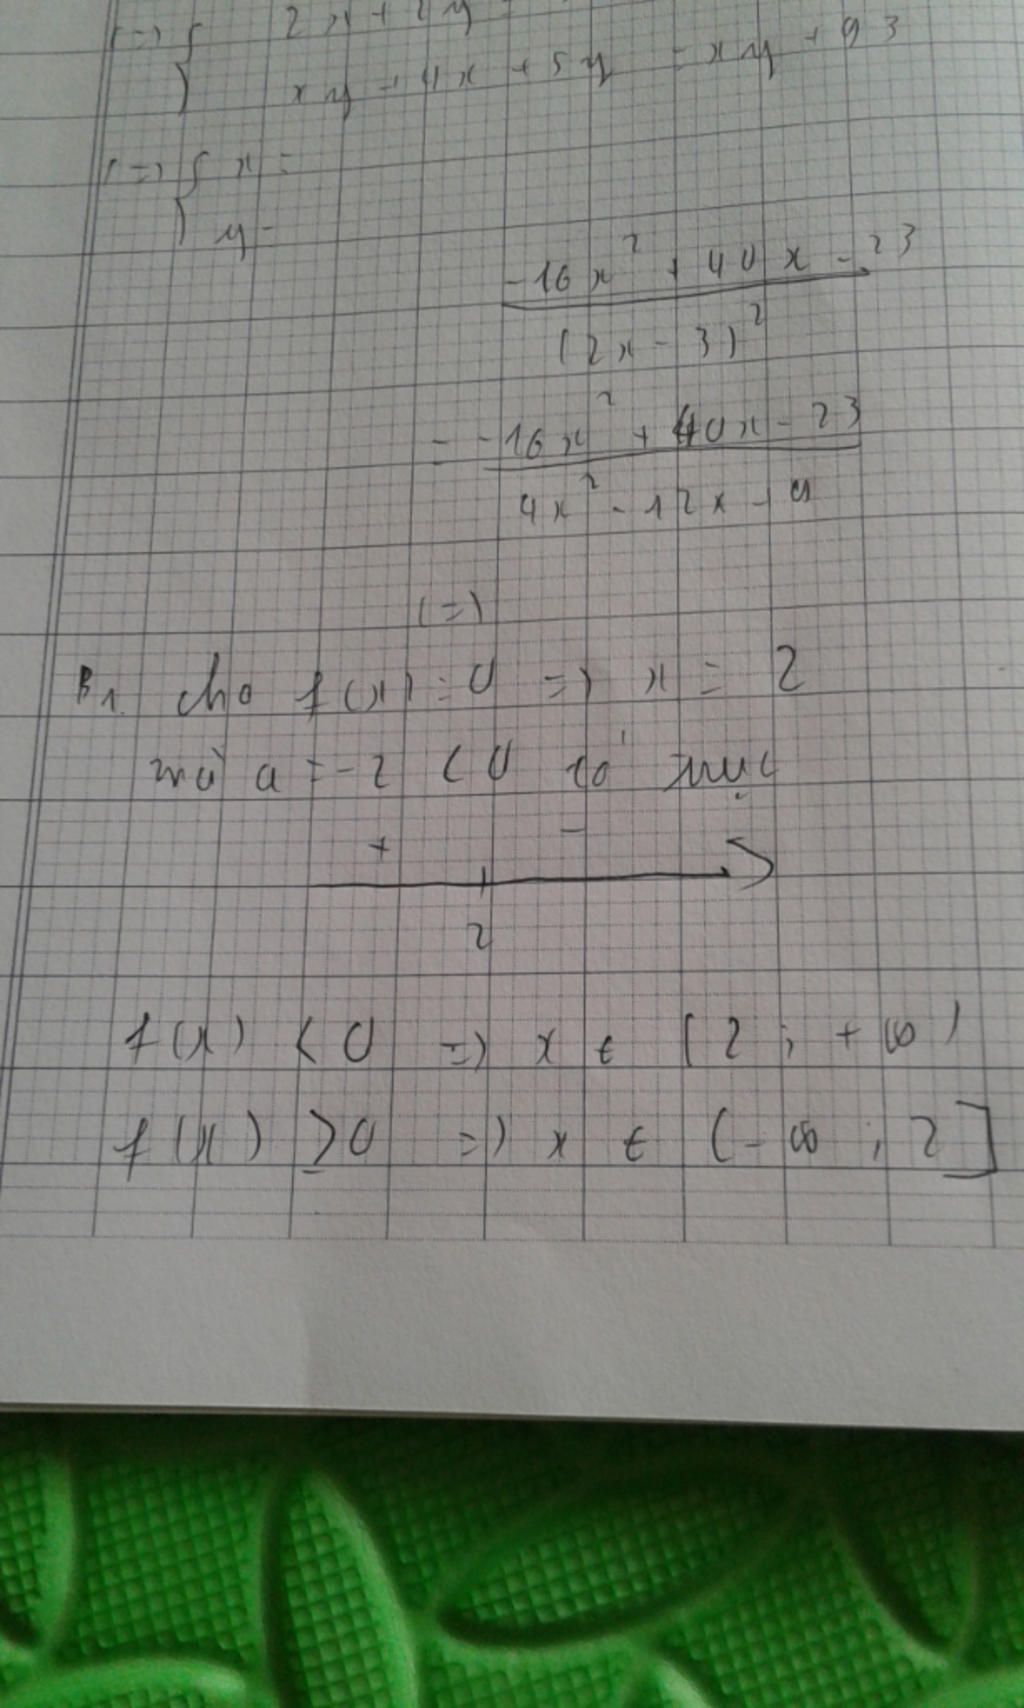 (=) { 2x + 2y
xy + 4x + 5y = xy + 93
(=) { x =
y =
-16x² + 40x - 23
(2x - 3)²
= -16x² + 40x - 23
4x² - 12x + 9
(=)
B1. cho f(x) = 0 => x = 2
mà a = -2 < 0 có
+ -
2
f(x) < 0 => x ∈ (2 ; +∞)
f(x) ≥ 0 => x ∈ (-∞ ; 2]